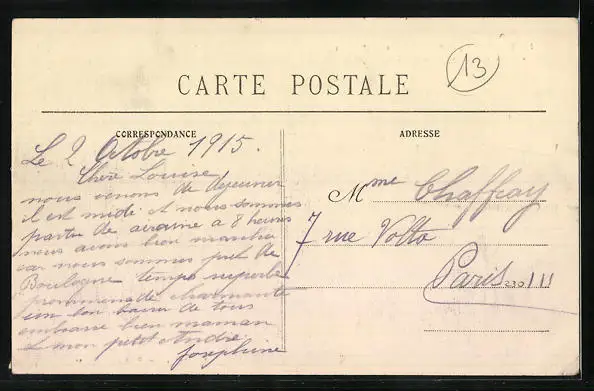 13
CARTE POSTALE
CORRESPONDANCE
ADRESSE
Le 2 Octobre 1915.
Chère Louise
nous venons de déjeuner
il est midi et nous sommes
partis de airaine a 8 heures
nous avons bien marché
car nous sommes prêt de
Boulogne temps superbe
promenade charmante
un bon baiser de tous
embrasse bien maman
& mon petit André.
Joséphine
Mme Chaffray
7 rue Volta
Paris III